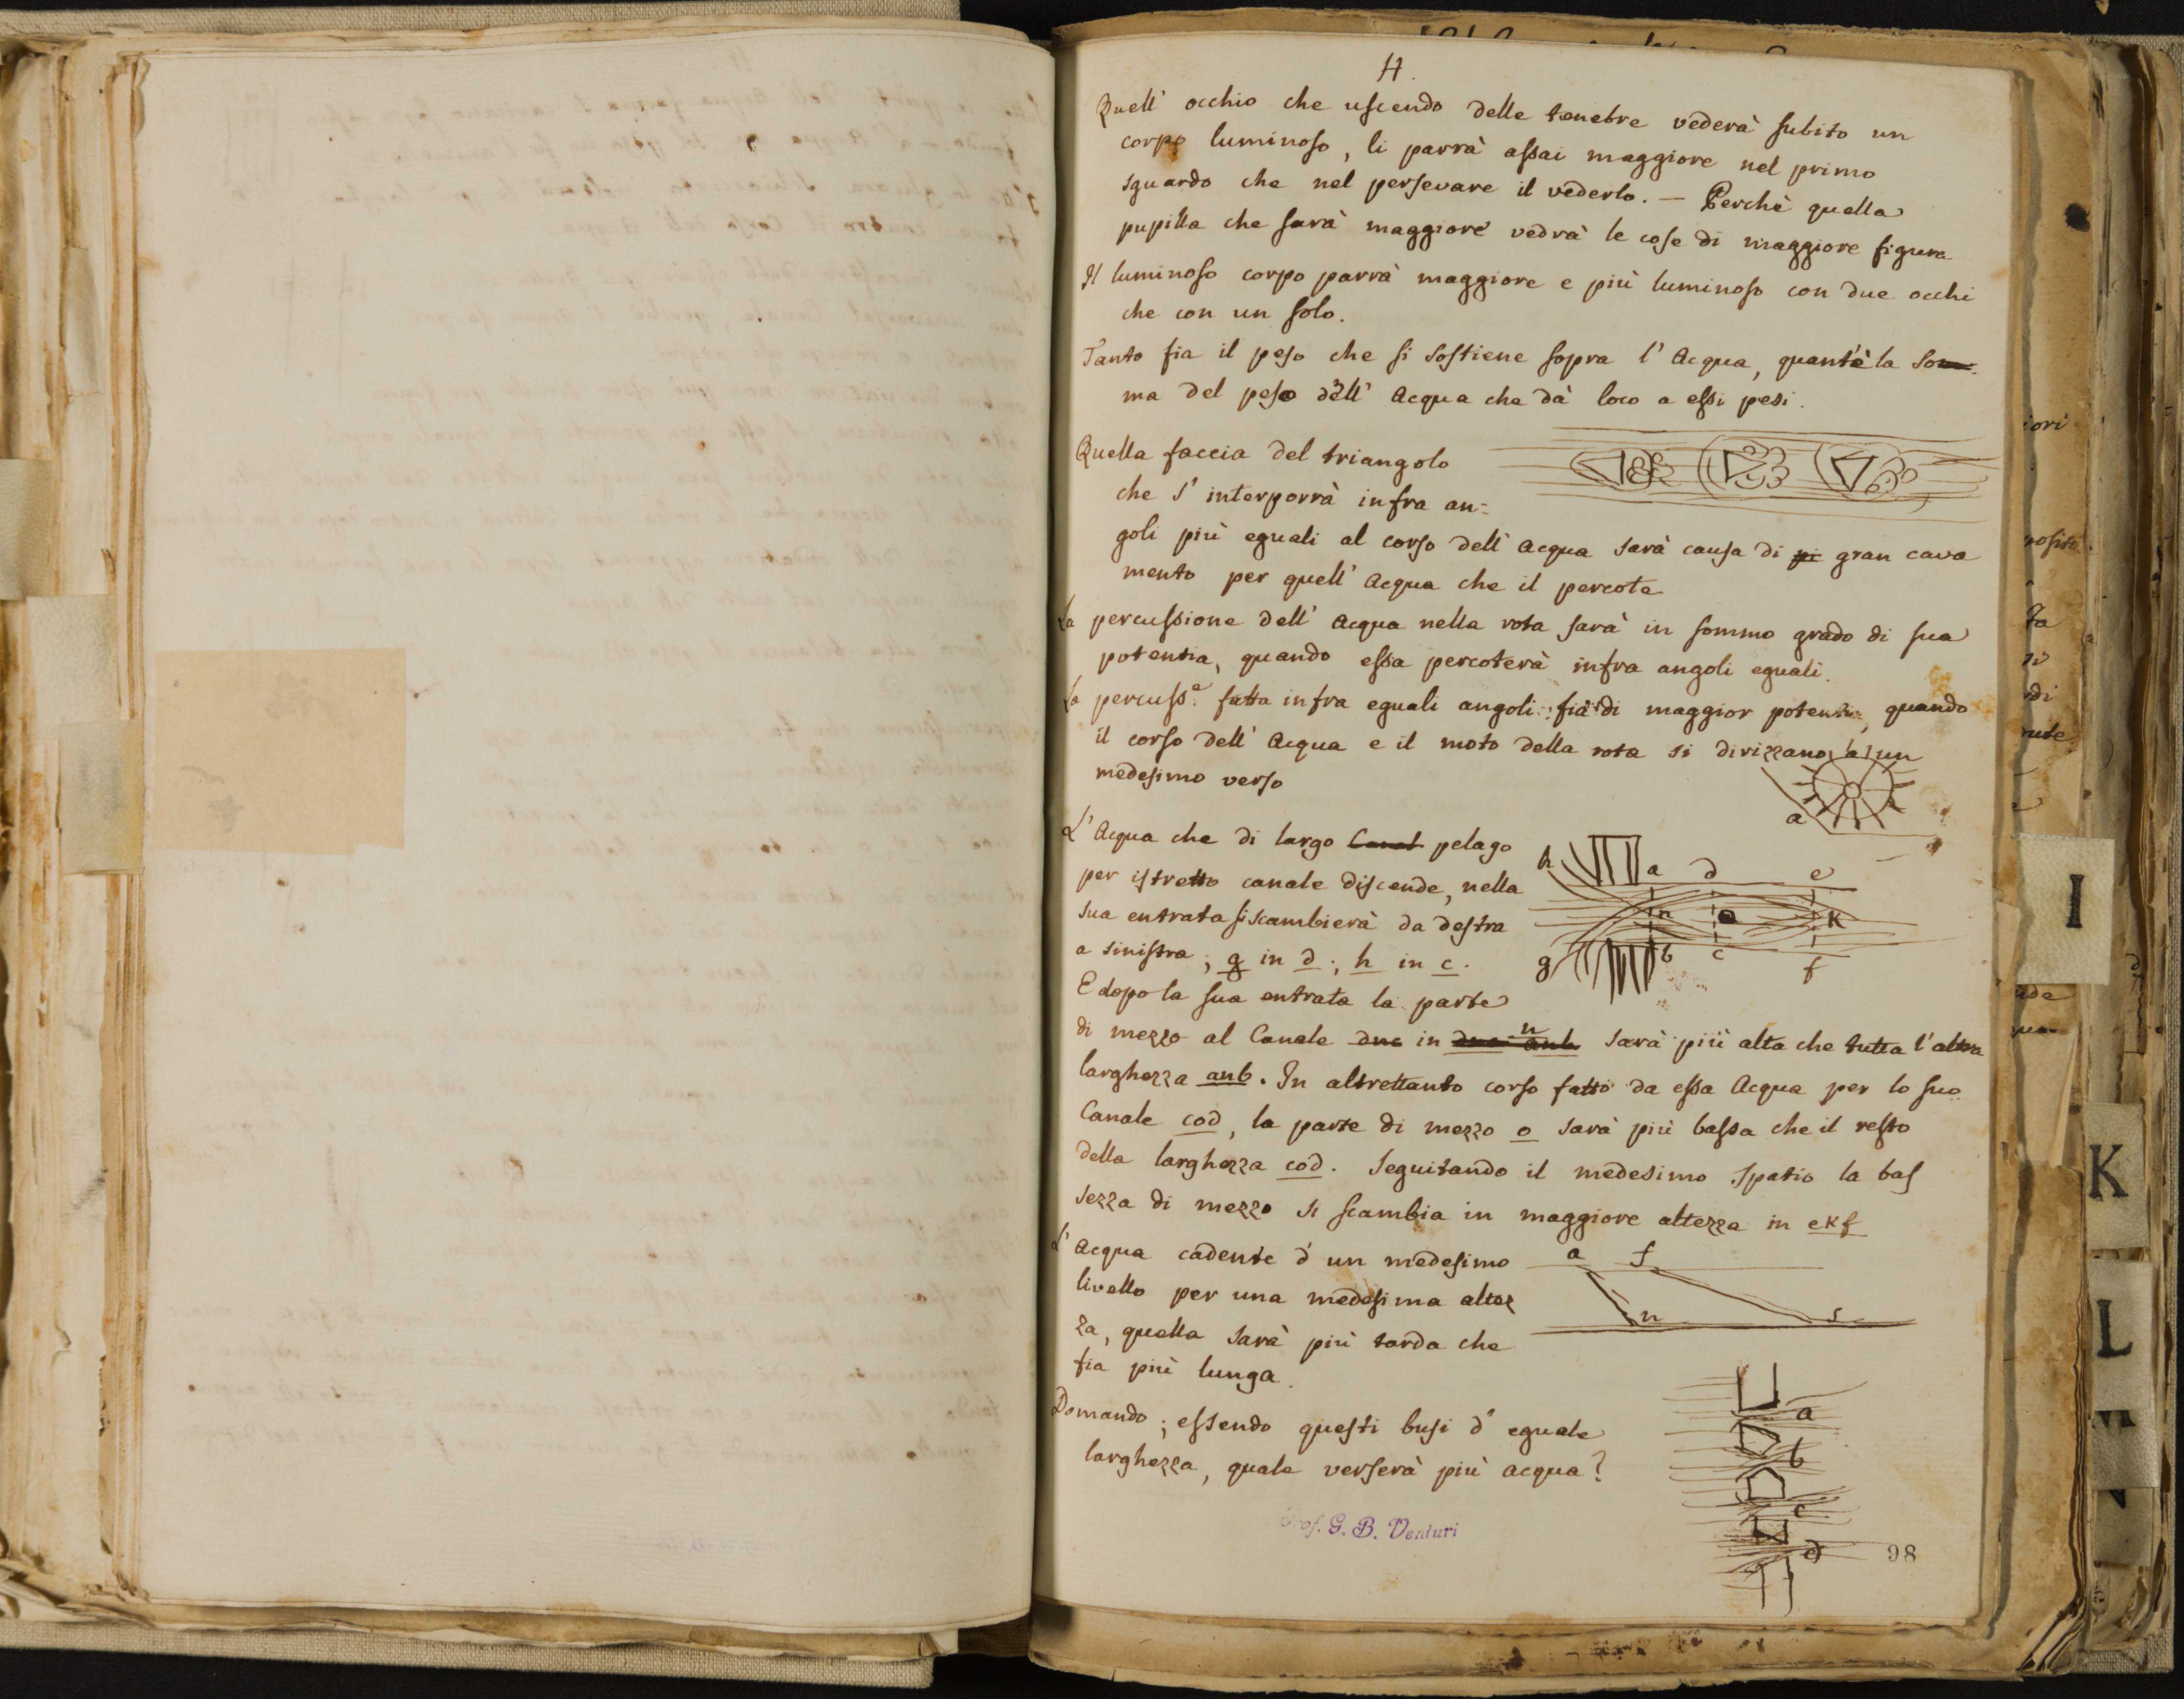 H.
Quell' occhio che uscendo delle tenebre vederà subito un
corpo luminoso, li parrà assai maggiore nel primo
sguardo che nel persevare il vederlo. — Perchè quella
pupilla che sarà maggiore vedrà le cose di maggiore figura
Il luminoso corpo parrà maggiore e più luminoso con due occhi
che con un solo.
Tanto fia il peso che si sostiene sopra l' Acqua, quant'è la som
ma del peso dell' Acqua che dà loco a essi pesi.
Quella faccia del triangolo
che s' interporrà infra an=
goli più eguali al corso dell' Acqua sarà causa di pi gran cava
mento per quell' Acqua che il percote
La percussione dell' Acqua nella rota sarà in sommo grado di sua
potentia, quando essa percoterà infra angoli eguali.
La percuss.e fatta infra eguali angoli fia di maggior potentia, quando
il corso dell' Acqua e il moto della rota si dirizzano a un
medesimo verso
a
L' Acqua che di largo Canal pelago
per istretto canale discende, nella
sua entrata si scambierà da destra
a sinistra; g in d; h in c.
E dopo la sua entrata la parte
h a d e
n o K
g b c f
di mezzo al Canale dnc in dnc anb n sarà più alta che tutta l'altra
larghezza anb. In altrettanto corso fatto da essa Acqua per lo suo
Canale cod, la parte di mezzo o sarà più bassa che il resto
della larghezza cod. Seguitando il medesimo spatio la bas
sezza di mezzo si scambia in maggiore altezza in eKf
L' Acqua cadente d' un medesimo
livello per una medesima altez
za, quella sarà più tarda che
fia più lunga.
a f
n s
Domando; essendo questi busi d' eguale
larghezza, quale verserà più acqua?
a
b
c
d
Prof. G. B. Venturi
98
I
K
L